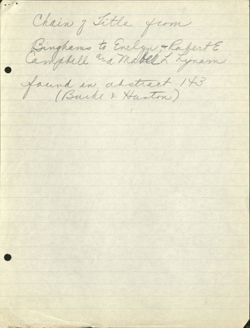 Chain of Title from
Binghams to Evelyn & Robert E
Campbell & Mabel L Lynam
found in abstract 143
(Burke & Huston)